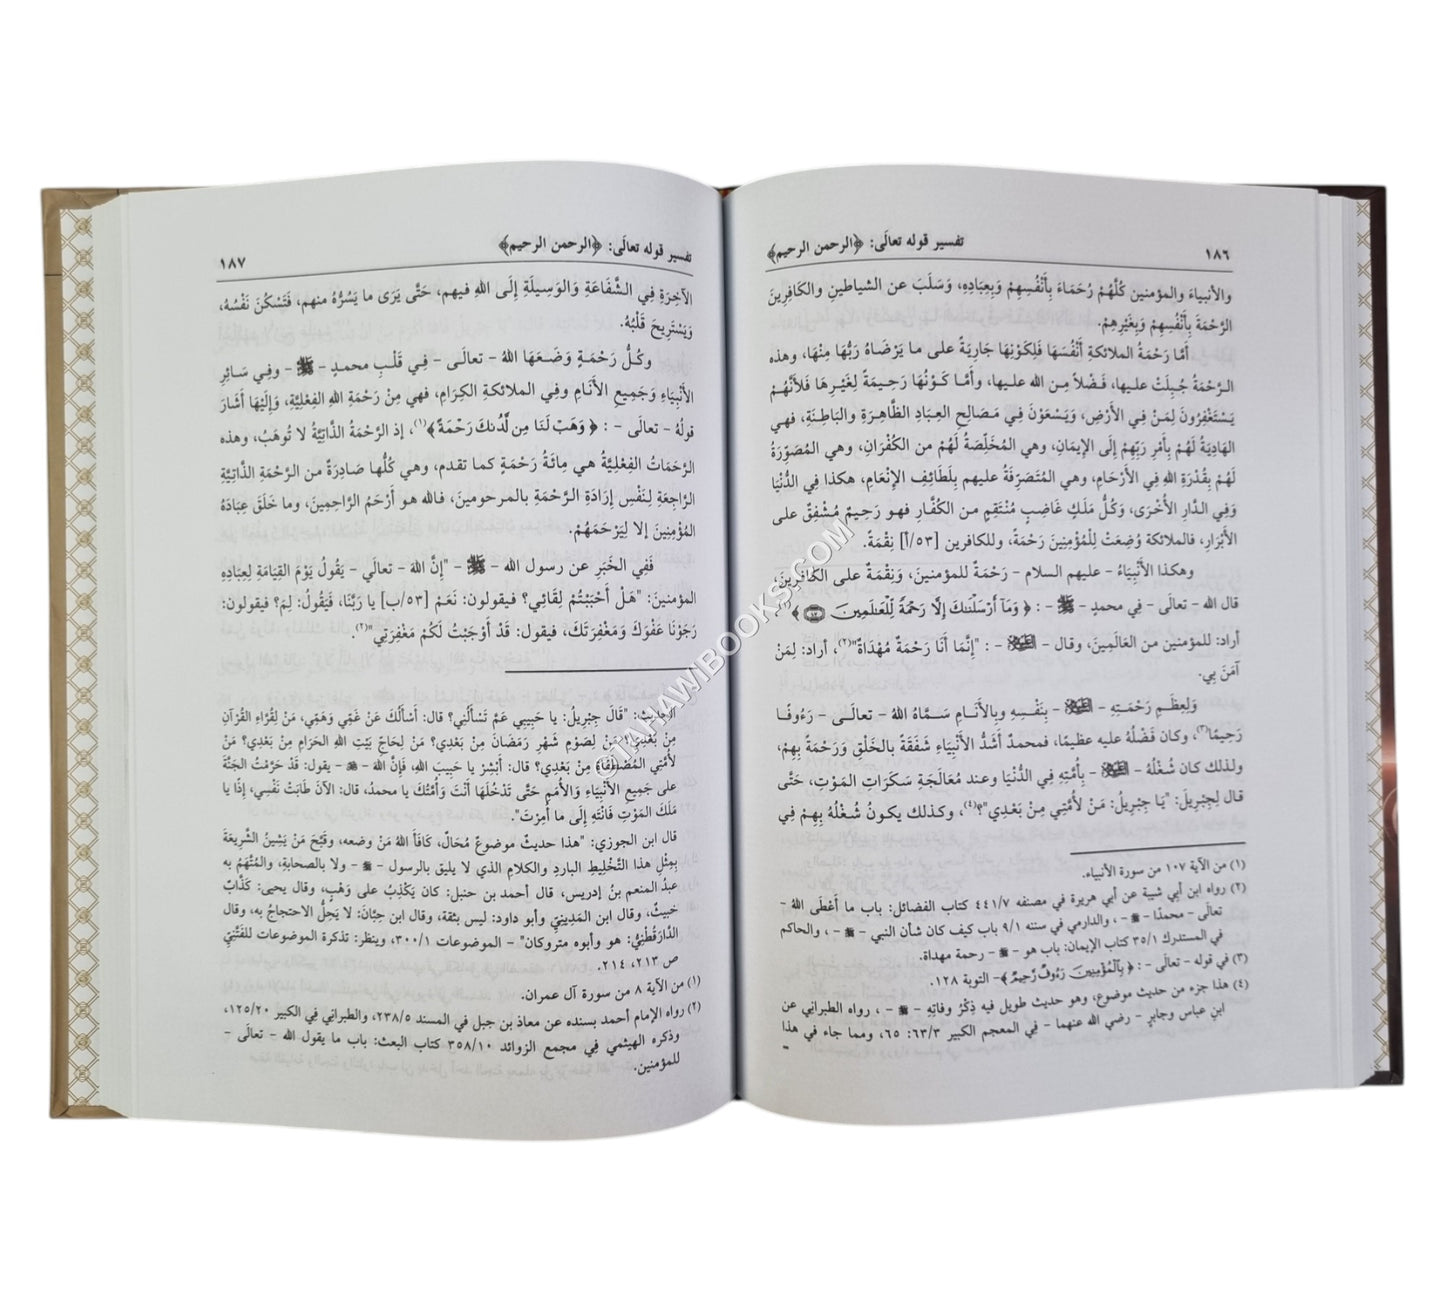 ١٨٦
تفسير قوله تعالَى: ﴿الرحمن الرحيم﴾
والأنبياءَ والمؤمنين كُلَّهُمْ رُحَمَاءَ بِأَنْفُسِهِمْ وَبِعِبَادِهِ، وَسَلَبَ عن الشياطين والكَافِرِينَ
الرَّحْمَةَ بِأَنْفُسِهِمْ وَبِغَيْرِهِمْ.
أَمَّا رَحْمَةُ الملائكةِ أَنْفُسَهَا فَلِكَوْنِهَا جَارِيَةً على ما يَرْضَاهُ رَبُّهَا مِنْهَا، وهذه
الرَّحْمَةُ جُبِلَتْ عليها، فَضْلاً مِن الله عليها، وأَمَّا كَوْنُهَا رَحِيمَةً لِغَيْرِهَا فَلأَنَّهُمْ
يَسْتَغْفِرُونَ لِمَنْ فِي الأَرْضِ، وَيَسْعَوْنَ فِي مَصَالِحِ العِبَادِ الظَّاهِرَةِ والبَاطِنَةِ، فهي
الهَادِيَةُ لَهُمْ بِأَمْرِ رَبِّهِمْ إلى الإيمَانِ، وهي المُخَلِّصَةُ لَهُمْ من الكُفْرَانِ، وهي المُصَوِّرَةُ
لَهُمْ بِقُدْرَةِ اللهِ فِي الأَرْحَامِ، وهي المُتَصَرِّفَةُ عليهم بِلَطَائِفِ الإِنْعَامِ، هكذا فِي الدُّنْيَا
وَفِي الدَّارِ الأُخْرَى، وَكُلُّ مَلَكٍ غَاضِبٍ مُنْتَقِمٍ من الكُفَّارِ فهو رَحِيمٌ مُشْفِقٌ على
الأَبْرَارِ، فالملائكة وُضِعَتْ لِلْمُؤْمِنِينَ رَحْمَةً، وللكافرين [٥٣/أ] نِقْمَةً.
وهكذا الأَنْبِيَاءُ - عليهم السلام - رَحْمَةٌ للمؤمنينَ، وَنِقْمَةٌ على الكافِرِينَ،
قال الله - تعالَى - فِي محمدٍ - ﷺ - : ﴿ وَمَآ أَرْسَلْنَٰكَ إِلَّا رَحْمَةً لِّلْعَٰلَمِينَ ﴾(١)
أراد: للمؤمنين من العَالَمِينَ، وقال - ﷺ - : "إِنَّمَا أَنَا رَحْمَةٌ مُهْدَاةٌ"(٢)، أراد: لِمَنْ
آمَنَ بِي.
وَلِعِظَمِ رَحْمَتِهِ - ﷺ - بِنَفْسِهِ وبِالأَنَامِ سَمَّاهُ اللهُ - تعالَى - رَءُوفًا
رَحِيمًا(٣)، وكان فَضْلُهُ عليه عظيمًا، فمحمدٌ أَشَدُّ الأَنْبِيَاءِ شَفَقَةً بالخَلْقِ وَرَحْمَةً بِهِمْ،
ولذلك كان شُغْلُهُ - ﷺ - بأُمَّتِهِ فِي الدُّنْيَا وعند مُعَالَجَةِ سَكَرَاتِ المَوْتِ، حَتَّى
قال لِجِبْرِيلَ: "يَا جِبْرِيلُ: مَنْ لأُمَّتِي مِنْ بَعْدِي"؟(٤)، وكذلك يكونُ شُغْلُهُ بِهِمْ فِي
(١) من الآية ١٠٧ من سورة الأنبياء.
(٢) رواه ابن أبي شيبة عن أبي هريرة في مصنفه ٤٤١/٧ كتاب الفضائل: باب ما أَعْطَى اللهُ -
تعالَى - محمدًا - ﷺ - ، والدارمي في سننه ٩/١ باب كيف كان شأن النبي - ﷺ - ، والحاكم
في المستدرك ٣٥/١ كتاب الإيمان: باب هو - ﷺ - رحمة مهداة.
(٣) في قوله - تعالَى - : ﴿ بِٱلْمُؤْمِنِينَ رَءُوفٌ رَّحِيمٌ ﴾- التوبة ١٢٨.
(٤) هذا جزء من حديث موضوع، وهو حديث طويل فيه ذِكْرُ وفاتِهِ - ﷺ - ، رواه الطبراني عن
ابن عباس وجابرٍ - رضي الله عنهما - في المعجم الكبير ٦٣/٣: ٦٥، ومما جاء في هذا =
تفسير قوله تعالَى: ﴿الرحمن الرحيم﴾
١٨٧
الآخِرَةِ فِي الشَّفَاعَةِ وَالوَسِيلَةِ إِلَى اللهِ فيهم، حَتَّى يَرَى ما يَسُرُّهُ منهم، فَتَسْكُنَ نَفْسُهُ،
وَيَسْتَرِيحَ قَلْبُهُ.
وكُلُّ رَحْمَةٍ وَضَعَهَا اللهُ - تعالَى - فِي قَلْبِ محمدٍ - ﷺ - وفِي سَائِرِ
الأَنْبِيَاءِ وَجَمِيعِ الأَنَامِ وفِي الملائكةِ الكِرَامِ، فهي مِنْ رَحْمَةِ اللهِ الفِعْلِيَّةِ، وَإِلَيْهَا أَشَارَ
قولُهُ - تعالَى - : ﴿ وَهَبْ لَنَا مِن لَّدُنكَ رَحْمَةً ﴾(١)، إذ الرَّحْمَةُ الذَّاتِيَّةُ لا تُوهَبُ، وهذه
الرَّحَمَاتُ الفِعْلِيَّةُ هي مِائَةُ رَحْمَةٍ كما تقدم، وهي كُلُّها صَادِرَةٌ من الرَّحْمَةِ الذَّاتِيَّةِ
الرَّاجِعَةِ لِنَفْسِ إِرَادَةِ الرَّحْمَةِ بالمرحومينَ، فالله هو أَرْحَمُ الرَّاحِمِينَ، وما خَلَقَ عِبَادَهُ
المُؤْمِنِينَ إلا لِيَرْحَمَهُمْ.
فَفِي الخَبَرِ عن رسول الله - ﷺ - "إِنَّ اللهَ - تعالَى - يَقُولُ يَوْمَ القِيَامَةِ لِعِبَادِهِ
المؤمنينَ: "هَلْ أَحْبَبْتُمْ لِقَائِي؟ فيقولون: نَعَمْ [٥٣/ب] يا رَبَّنَا، فَيَقُولُ: لِمَ؟ فيقولون:
رَجَوْنَا عَفْوَكَ وَمَغْفِرَتَكَ، فيقول: قَدْ أَوْجَبْتُ لَكُمْ مَغْفِرَتِي"(٢).
الحديث: "قَالَ جِبْرِيلُ: يا حَبِيبِي عَمَّ تَسْأَلُنِي؟ قال: أَسْأَلُكَ عَنْ غَمِّي وَهَمِّي، مَنْ لِقُرَّاءِ القُرْآنِ
مِنْ بَعْدِي؟ مَنْ لِصَوْمِ شَهْرِ رَمَضَانَ مِنْ بَعْدِي؟ مَنْ لِحَاجِّ بَيْتِ اللهِ الحَرَامِ مِنْ بَعْدِي؟ مَنْ
لأُمَّتِي المُصْطَفَاةِ مِنْ بَعْدِي؟ قال: أَبْشِرْ يا حَبِيبَ اللهِ، فَإِنَّ اللهَ - ﷻ - يقول: قَدْ حَرَّمْتُ الجَنَّةَ
على جَمِيعِ الأَنْبِيَاءِ والأُمَمِ حَتَّى تَدْخُلَهَا أَنْتَ وَأُمَّتُكَ يا محمدُ، قال: الآنَ طَابَتْ نَفْسِي، إِذًا يا
مَلَكَ المَوْتِ فَانْتَهِ إلَى ما أُمِرْتَ".
قال ابن الجوزي: "هذا حديثٌ موضوعٌ مُحَالٌ، كَافَأَ اللهُ مَنْ وضعه، وقَبَّحَ مَنْ يَشِينُ الشَّرِيعَةَ
بِمِثْلِ هذا التَّخْلِيطِ الباردِ والكلامِ الذي لا يليق بالرسول - ﷺ - ولا بالصحابةِ، والمُتَّهَمُ به
عبدُ المنعم بنُ إدريس، قال أحمد بن حنبل: كان يَكْذِبُ على وَهْبٍ، وقال يحيى: كَذَّابٌ
خبيثٌ، وقال ابن المَدِينِيِّ وأبو داود: ليس بثقة، وقال ابن حِبَّانَ: لا يَحِلُّ الاحتجاجُ به، وقال
الدَّارَقُطْنِيُّ: هو وأبوه متروكان" - الموضوعات ٣٠٠/١، وينظر: تذكرة الموضوعات للفَتَّنِيِّ
ص ٢١٣، ٢١٤.
(١) من الآية ٨ من سورة آل عمران.
(٢) رواه الإمام أحمد بسنده عن معاذ بن جبل في المسند ٢٣٨/٥، والطبراني فِي الكبير ١٢٥/٢٠،
وذكره الهيثمي في مجمع الزوائد ٣٥٨/١٠ كتاب البعث: باب ما يقول الله - تعالَى -
للمؤمنين.
©TAHAWIBOOKS.COM